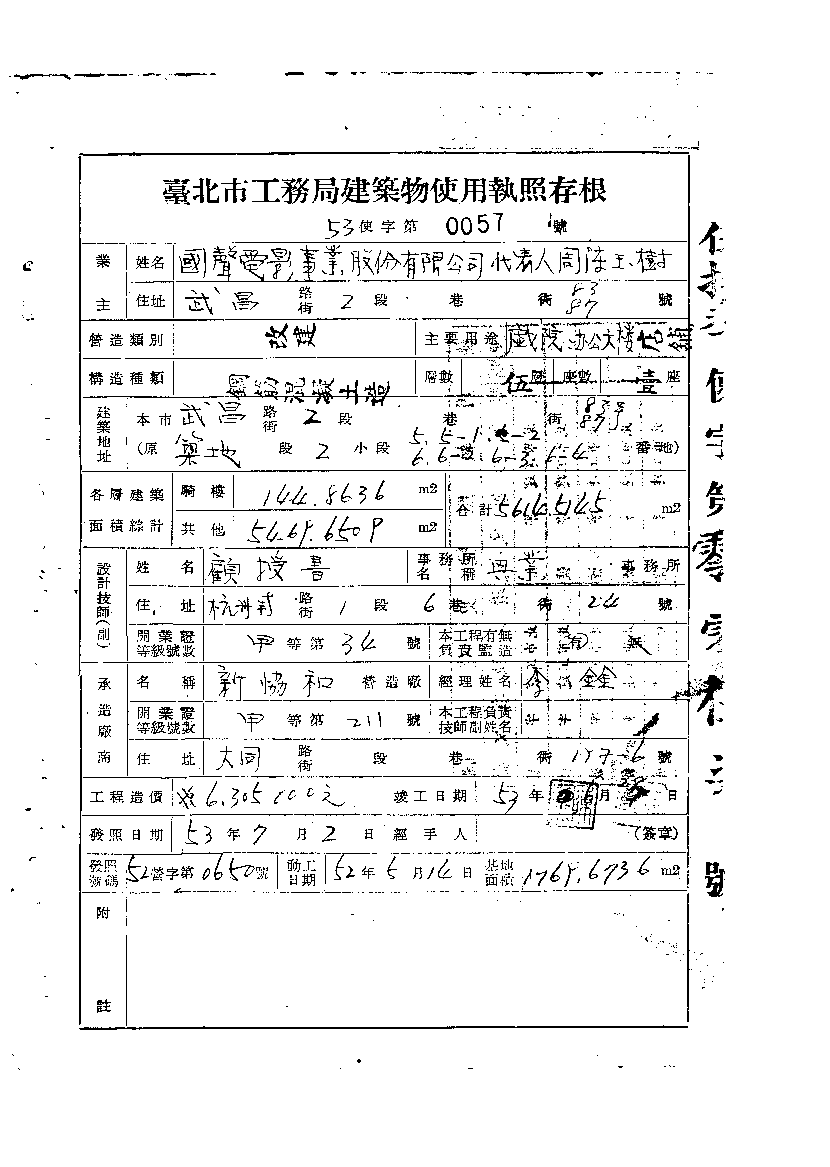 臺北市工務局建築物使用執照存根
53使字第 0057 號
業主 姓名 國聲電影事業股份有限公司代表人周陳玉樹
住址 武昌 路街 2 段 巷 衖 83 87 號
營造類別 改建 主要用途 戲院 办公大楼 店鋪
構造種類 鋼筋混凝土造 層數 伍層 座數 壹座
建築地址 本市 武昌 路街 2 段 巷 衖 83 87号
(原 築地 段 2 小段 5. 5-1. 5-2 6. 6-3. 6-4 番地)
各層建築面積綜計 騎樓 144.8636 m2 合計 5614.5145 m2
共他 5469.6509 m2
設計技師(副) 姓名 顧授書 事務所名稱 興業 事務所
住址 杭州南 路街 1 段 6 巷 衖 24 號
開業證等級號數 甲 等第 34 號 本工程有無負責監造 有 無
承造廠商 名稱 新協和 營造廠 經理姓名 李 錢
開業證等級號數 甲 等第 211 號 本工程負責技師副姓名
住址 大同 路街 段 巷 衖 號
工程造價 6,305,100元 竣工日期 53年 6月 日
發照日期 53年 7 月 2 日 經手人 (簽章)
發照號碼 52營字第0650號 動工日期 52年5月14日 基地面積 1769.6736 m2
附註